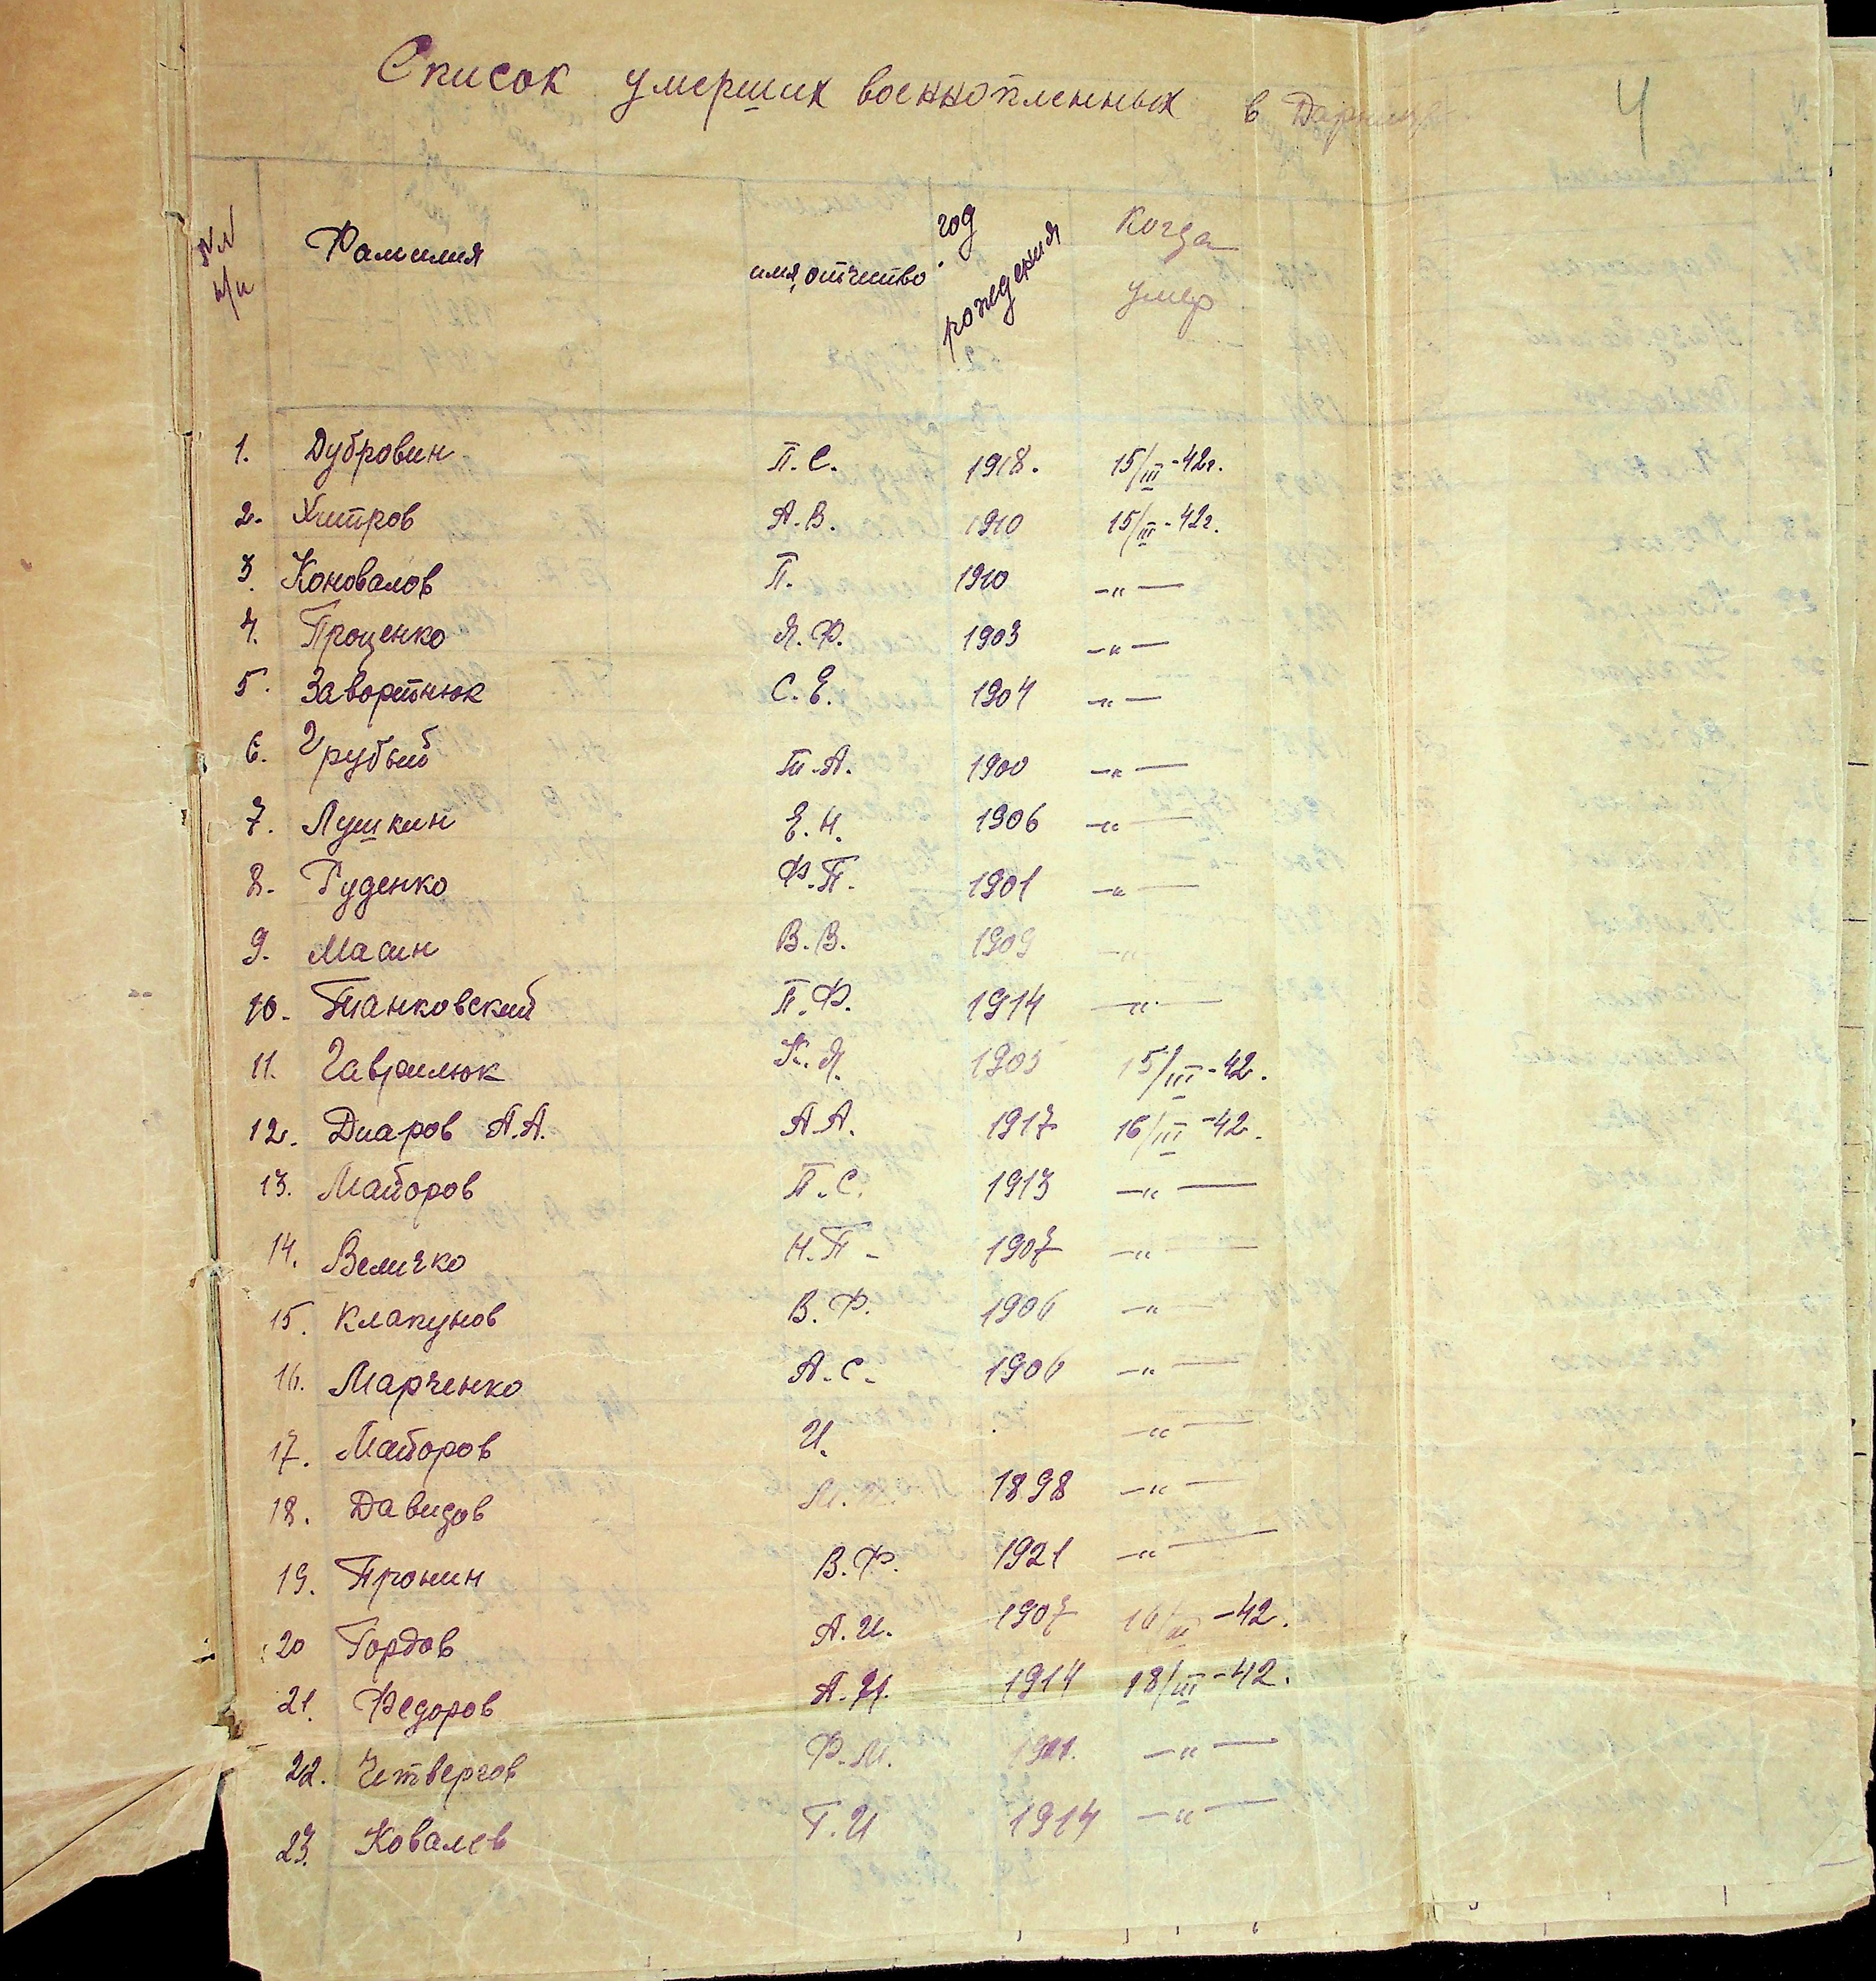 Список умерших военнопленных в Дарнице
4
№№ п/п Фамилия имя, отчество год рождения Когда умер
1. Дубровин П.С. 1918. 15/III-42г.
2. Хитров А.В. 1910 15/III-42г.
3. Коновалов П. 1910 -"-
4. Проценко Я.Ф. 1903 -"-
5. Заворотнюк С.Е. 1904 -"-
6. Грубый Т.А. 1900 -"-
7. Лушкин Е.Н. 1906 -"-
8. Руденко Ф.П. 1901 -"-
9. Масин В.В. 1909 -"-
10. Танковский П.Ф. 1914 -"-
11. Гаврилюк К.Я. 1905 15/III-42.
12. Диаров А.А. А.А. 1917 16/III-42.
13. Майоров П.С. 1913 -"-
14. Величко Н.П. 1907 -"-
15. Клапунов В.Ф. 1906 -"-
16. Марченко А.С. 1906 -"-
17. Майоров И. -"-
18. Давидов 1898 -"-
19. Пронин В.Ф. 1921 -"-
20 Гордов А.И. 1907 16/III-42.
21. Федоров А.И. 1914 18/III-42.
22. Четвергов Ф.М. -"-
23. Ковалев Г.И 1914 -"-